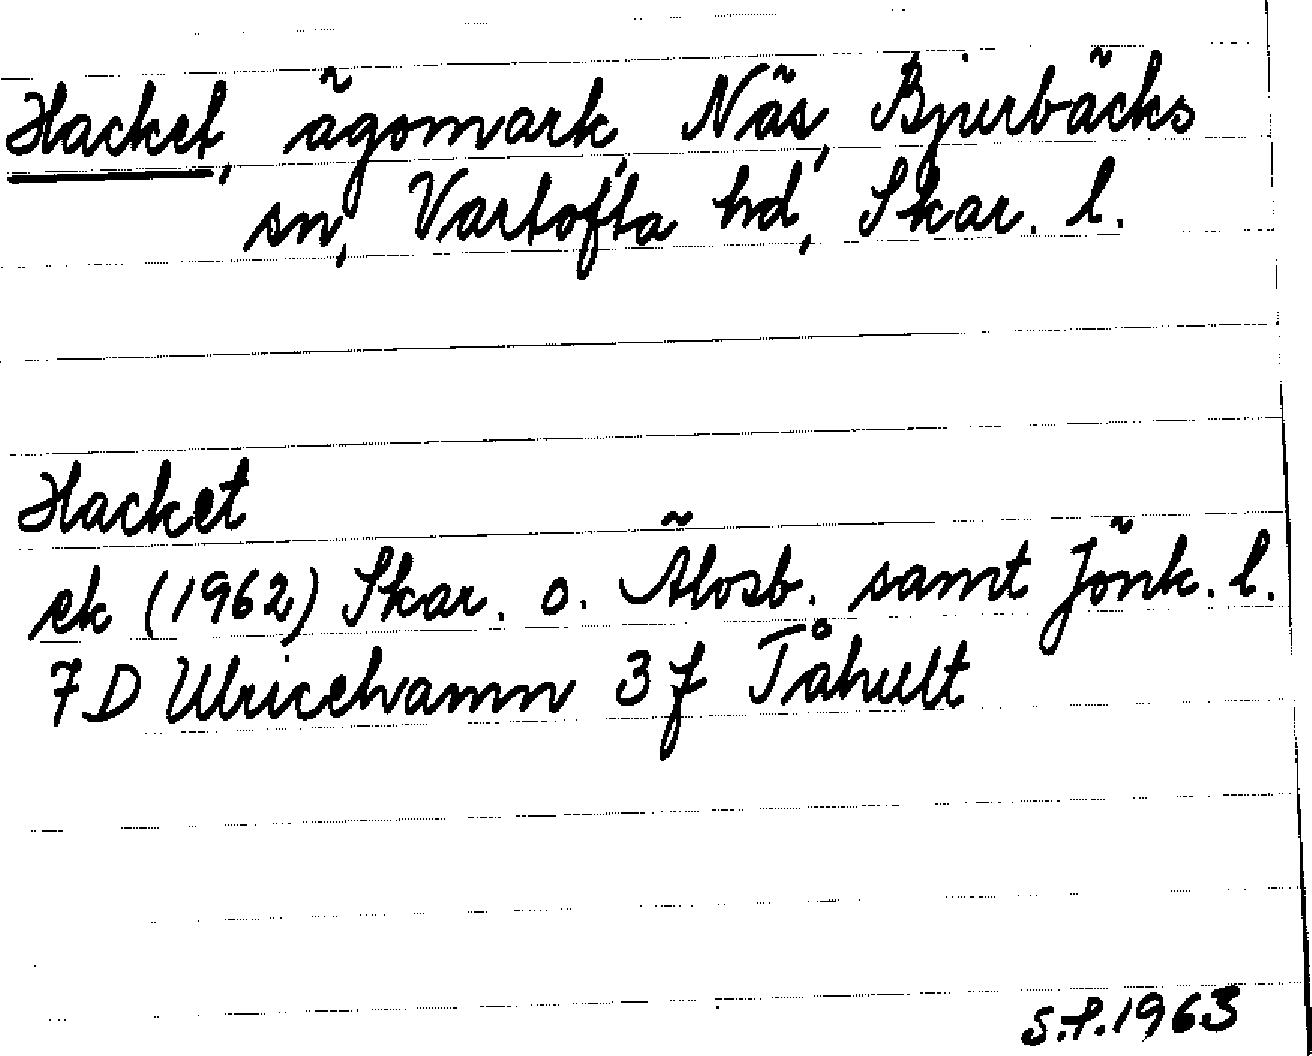 Hacket, ägomark, Näs, Bjurbäcks
sn, Vartofta hd, Skar. l.
Hacket
ek (1962) Skar. o. Älvsb. samt Jönk. l.
7D Ulricehamn 3f Tåhult
S.F. 1963